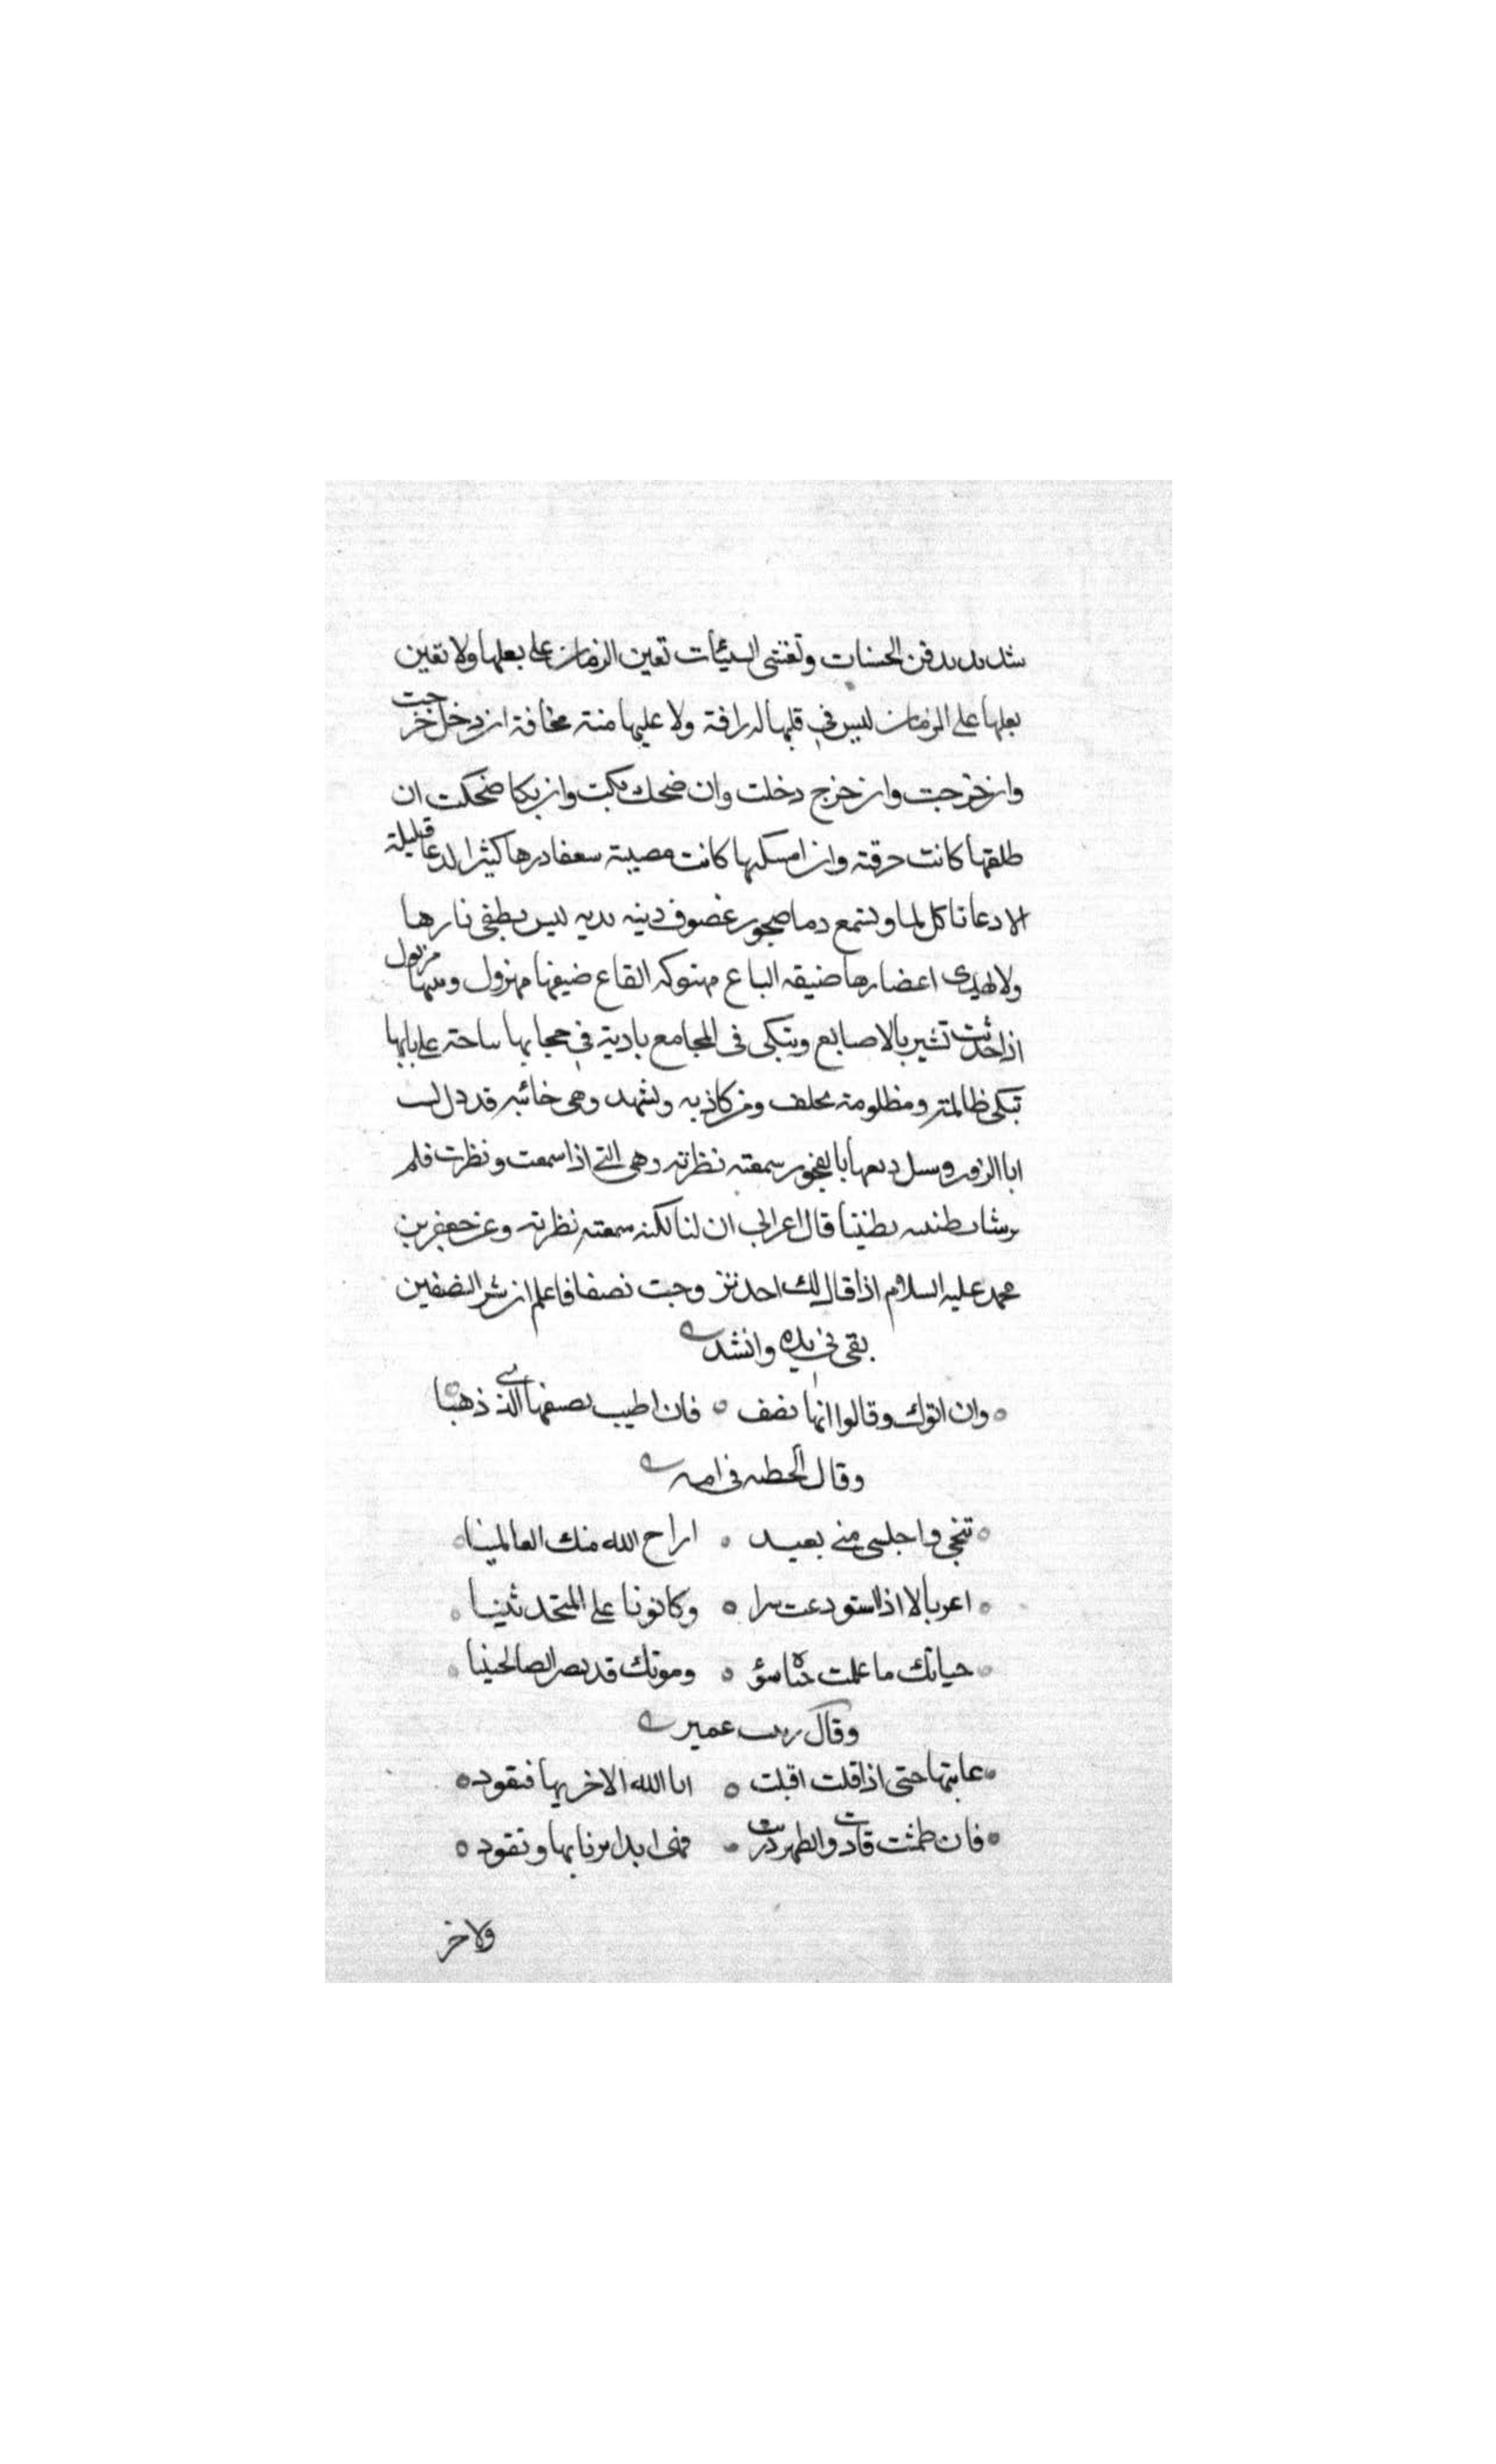 شديد تدفن الحسنات وتفشى السيئات تعين الزمان على بعلها ولا تعين
بعلها على الزمان ليس فى قلبها له رافة ولا عليها منه مخافة ان دخل خرجت
وان خرجت وان خرج دخلت وان ضحك بكت وان بكا ضحكت ان
طلقها كانت حرقته وان امسكها كانت مصيبة كثيرا لدعا قليلة
الادعا تاكل لما دما ليس يطفى نارها
ولا اعضارها ضيقه الباع مهتوكه القاع ضيفها مهزول مزبول
اذا حدثت تشير بالاصابع وتبكى فى المجامع بادية فى حجابها على بابها
تبكى ظالمة ومظلومة تحلف كاذبه وتشهد وهى خائبه قد دل
بالفجور سمعته نظرته وهى التى اذا سمعت ونظرت فلم
قال اعرابى ان لنا لكنه سمعته نظرته وعن جعفر بن
محمد عليه السلام اذا قال لك احد تزوجت نصفا فاعلم ان شر النصفين
بقى فى يده وانشد
وان اتوك وقالوا انها نصف ٥ فان اطيب نصفها الذى ذهبا
وقال الحطيه فى امه
تنحى واجلسى منى بعيد ٥ اراح الله منك العالمينا
اغربالا اذا استودعت سرا ٥ وكانونا على المتحدثينا
حياتك ما علمت حياة سؤ ٥ وموتك قد يسر الصالحينا
وقال عمير
عاتبتها حتى اذا قلت اقبلت ٥ ابا الله الا خزيها فتقود
فان طمثت قادت وان طهرت زنت ٥ فهى ابدا يزنا بها وتقود
ولاخر